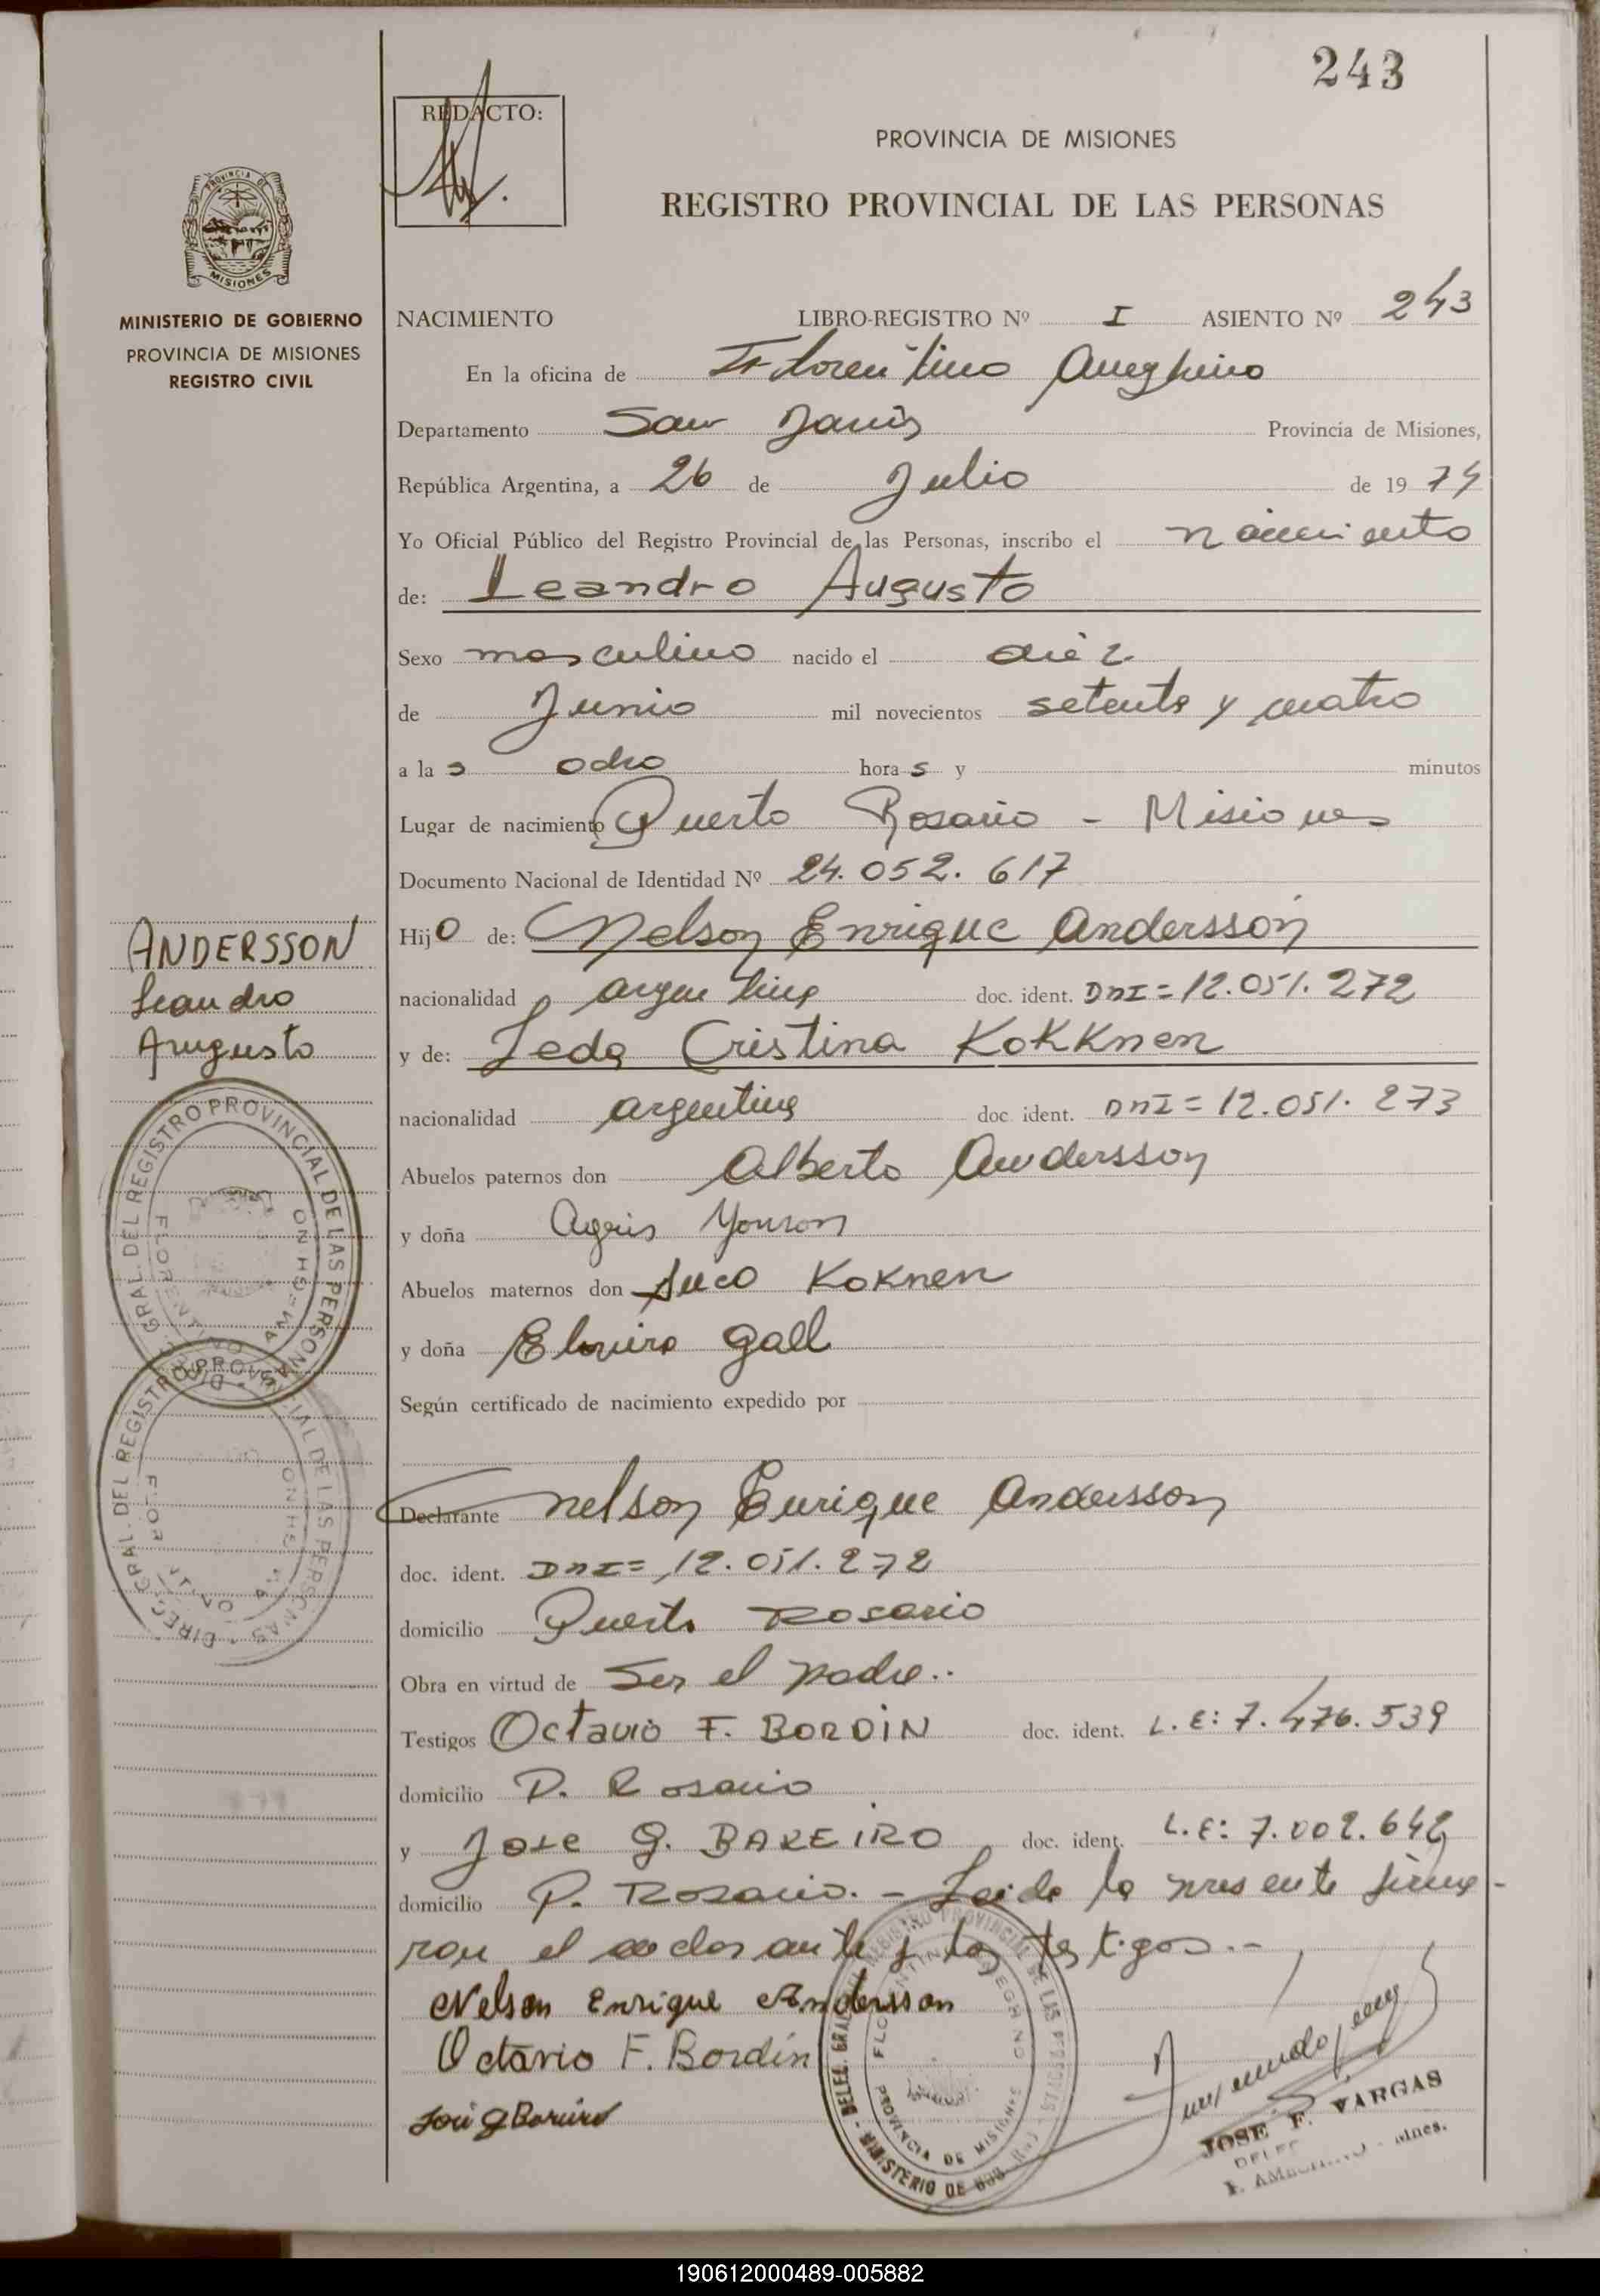 243
REDACTO:
PROVINCIA DE MISIONES
REGISTRO PROVINCIAL DE LAS PERSONAS
PROVINCIA DE
MISIONES
MINISTERIO DE GOBIERNO
PROVINCIA DE MISIONES
REGISTRO CIVIL
NACIMIENTO LIBRO-REGISTRO Nº I ASIENTO Nº 243
En la oficina de Florentino Ameghino
Departamento San Javier Provincia de Misiones,
República Argentina, a 26 de Julio de 1974
Yo Oficial Público del Registro Provincial de las Personas, inscribo el nacimiento
de: Leandro Augusto
Sexo masculino nacido el diéz
de Junio mil novecientos setenta y cuatro
a las ocho horas y minutos
Lugar de nacimiento Puerto Rosario - Misiones
Documento Nacional de Identidad Nº 24.052.617
Hijo de: Nelson Enrique Andersson
nacionalidad argentina doc. ident. DNI=12.051.272
y de: Leda Cristina KoKKnen
nacionalidad argentina doc. ident. DNI=12.051.273
Abuelos paternos don Alberto Andersson
y doña Yonson
Abuelos maternos don KoKnen
y doña Gall
Según certificado de nacimiento expedido por
Declarante Nelson Enrique Andersson
doc. ident. DNI=12.051.272
domicilio Puerto Rosario
Obra en virtud de Ser el padre..
Testigos Octavio F. BORDIN doc. ident. L.E: 7.476.539
domicilio P. Rosario
y Jose G. BAREIRO doc. ident. L.E: 7.002.642
domicilio P. Rosario. - Leida la presente firma-
ron el declarante y los testigos.-
Nelson Enrique Andersson
Octavio F. Bordín
José G Bareiro
ANDERSSON
Leandro
Augusto
DIREC. GRAL. DEL REGISTRO PROVINCIAL DE LAS PERSONAS
FLORENTINO AMEGHINO
DIREC. GRAL. DEL REGISTRO PROVINCIAL DE LAS PERSONAS
REGISTRO PROVINCIAL DE LAS PERSONAS
FLORENTINO AMEGHINO
PROVINCIA DE MISIONES
MINISTERIO DE GOB.
JOSE F. VARGAS
190612000489-005882